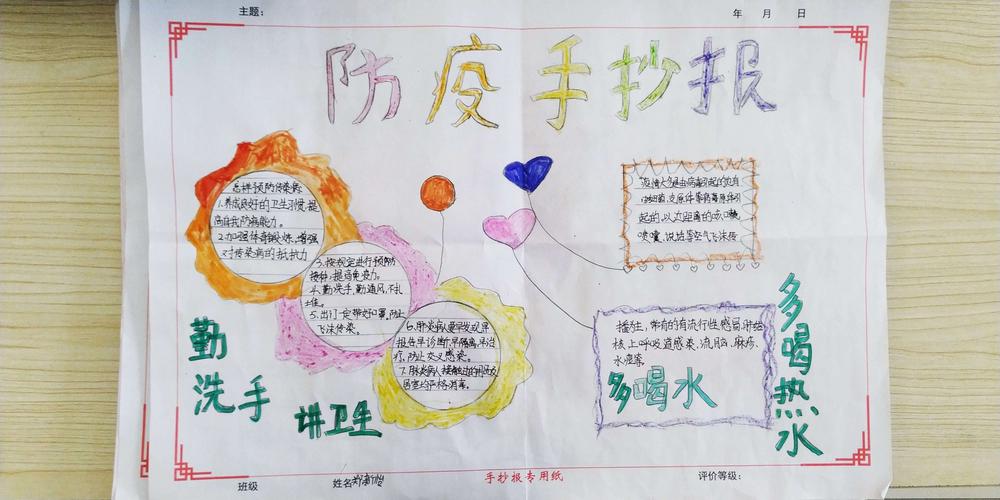 主题：
年 月 日
防疫手抄报
怎样预防传染病：
1.养成良好的卫生习惯，提
高自我防病能力。
2.加强体育锻炼，增强
对传染病的抵抗力
3.按规定进行预防
接种，提高免疫力。
4.勤洗手，勤通风，不扎
堆。
5.出门一定带好口罩，防止
飞沫传染。
6.肺炎病人要早发现早
报告早诊断早隔离，早治
疗，防止交叉感染。
7.肺炎病人接触过的用品及
居室均严格消毒。
起的，以近距离的咳嗽
喷嚏，说话等空气飞沫传
播为主，常有的有流行性感冒，肺结
核上呼吸道感染，流脑，麻疹、
水痘等。
多喝水
勤
洗手
讲卫生
多喝热水
手抄报专用纸
班级
姓名
评价等级：